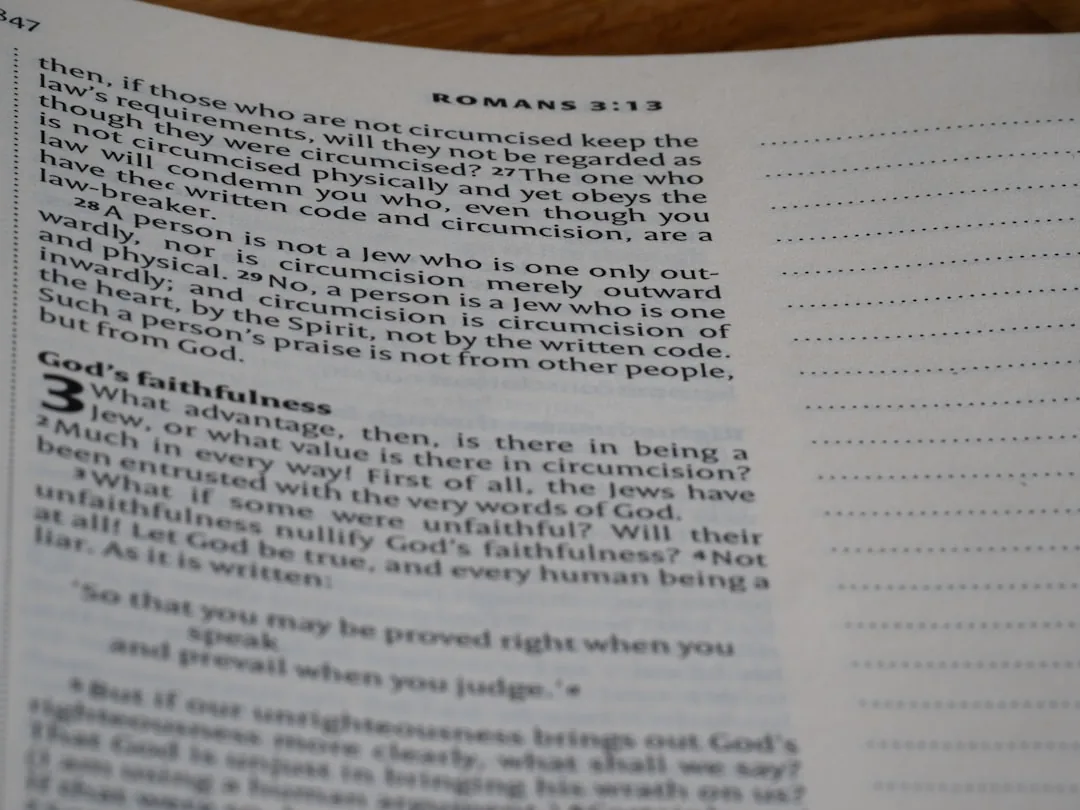 347
ROMANS 3:13
then, if those who are not circumcised keep the
law's requirements, will they not be regarded as
though they were circumcised? 27 The one who
is not circumcised physically and yet obeys the
law will condemn you who, even though you
have the c written code and circumcision, are a
law-breaker.
28 A person is not a Jew who is one only out-
wardly, nor is circumcision merely outward
and physical. 29 No, a person is a Jew who is one
inwardly; and circumcision is circumcision of
the heart, by the Spirit, not by the written code.
Such a person's praise is not from other people,
but from God.
God's faithfulness
3 What advantage, then, is there in being a
Jew, or what value is there in circumcision?
2 Much in every way! First of all, the Jews have
been entrusted with the very words of God.
3 What if some were unfaithful? Will their
unfaithfulness nullify God's faithfulness? 4 Not
at all! Let God be true, and every human being a
liar. As it is written:
'So that you may be proved right when you
speak
and prevail when you judge.'
5 But if our unrighteousness brings out God's
righteousness more clearly, what shall we say?
That God is unjust in bringing his wrath on us?
(I am using a human argument.)